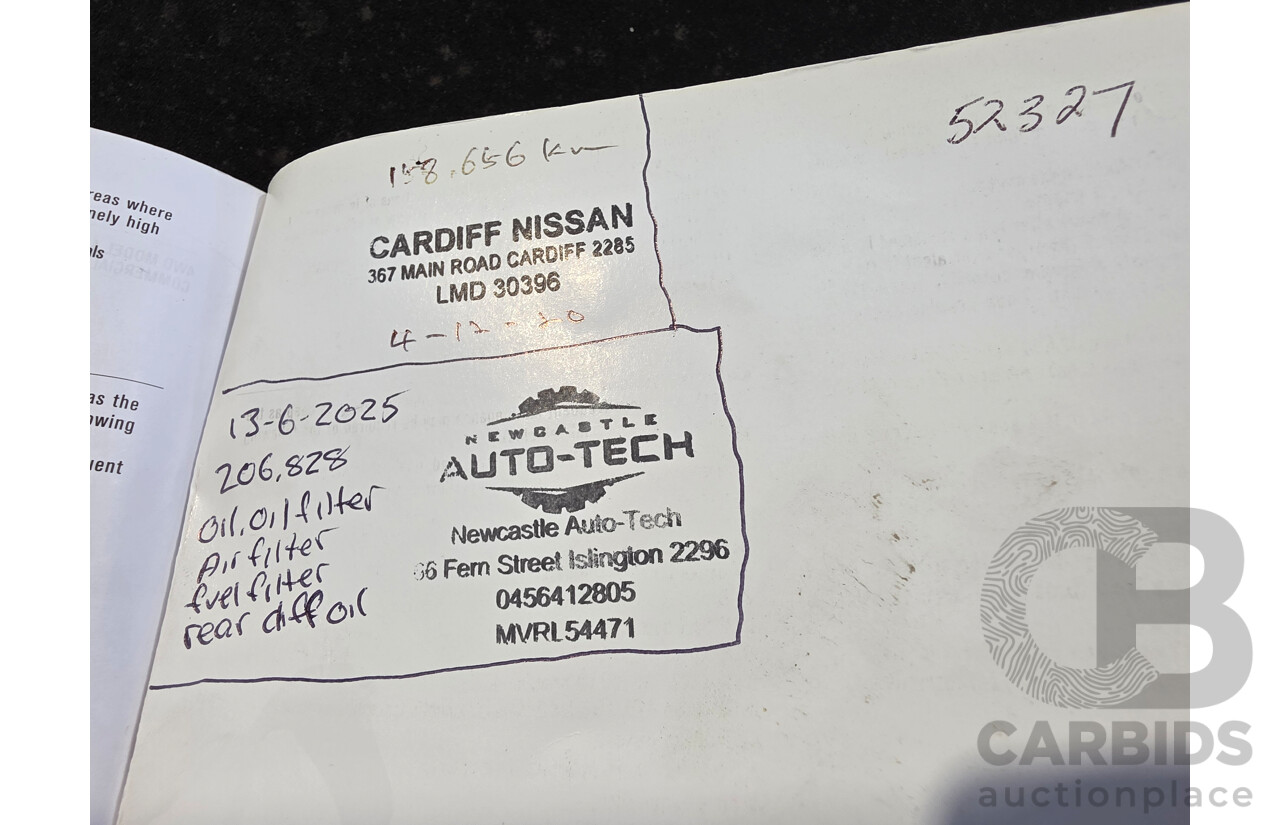 eas where
nely high
ls
as the
owing
uent
158.656 km
CARDIFF NISSAN
367 MAIN ROAD CARDIFF 2285
LMD 30396
4-12-20
52327
13-6-2025
206,828
oil, oil filter
Air filter
fuel filter
rear diff oil
NEWCASTLE
AUTO-TECH
Newcastle Auto-Tech
66 Fern Street Islington 2296
0456412805
MVRL54471
CB
CARBIDS
auctionplace